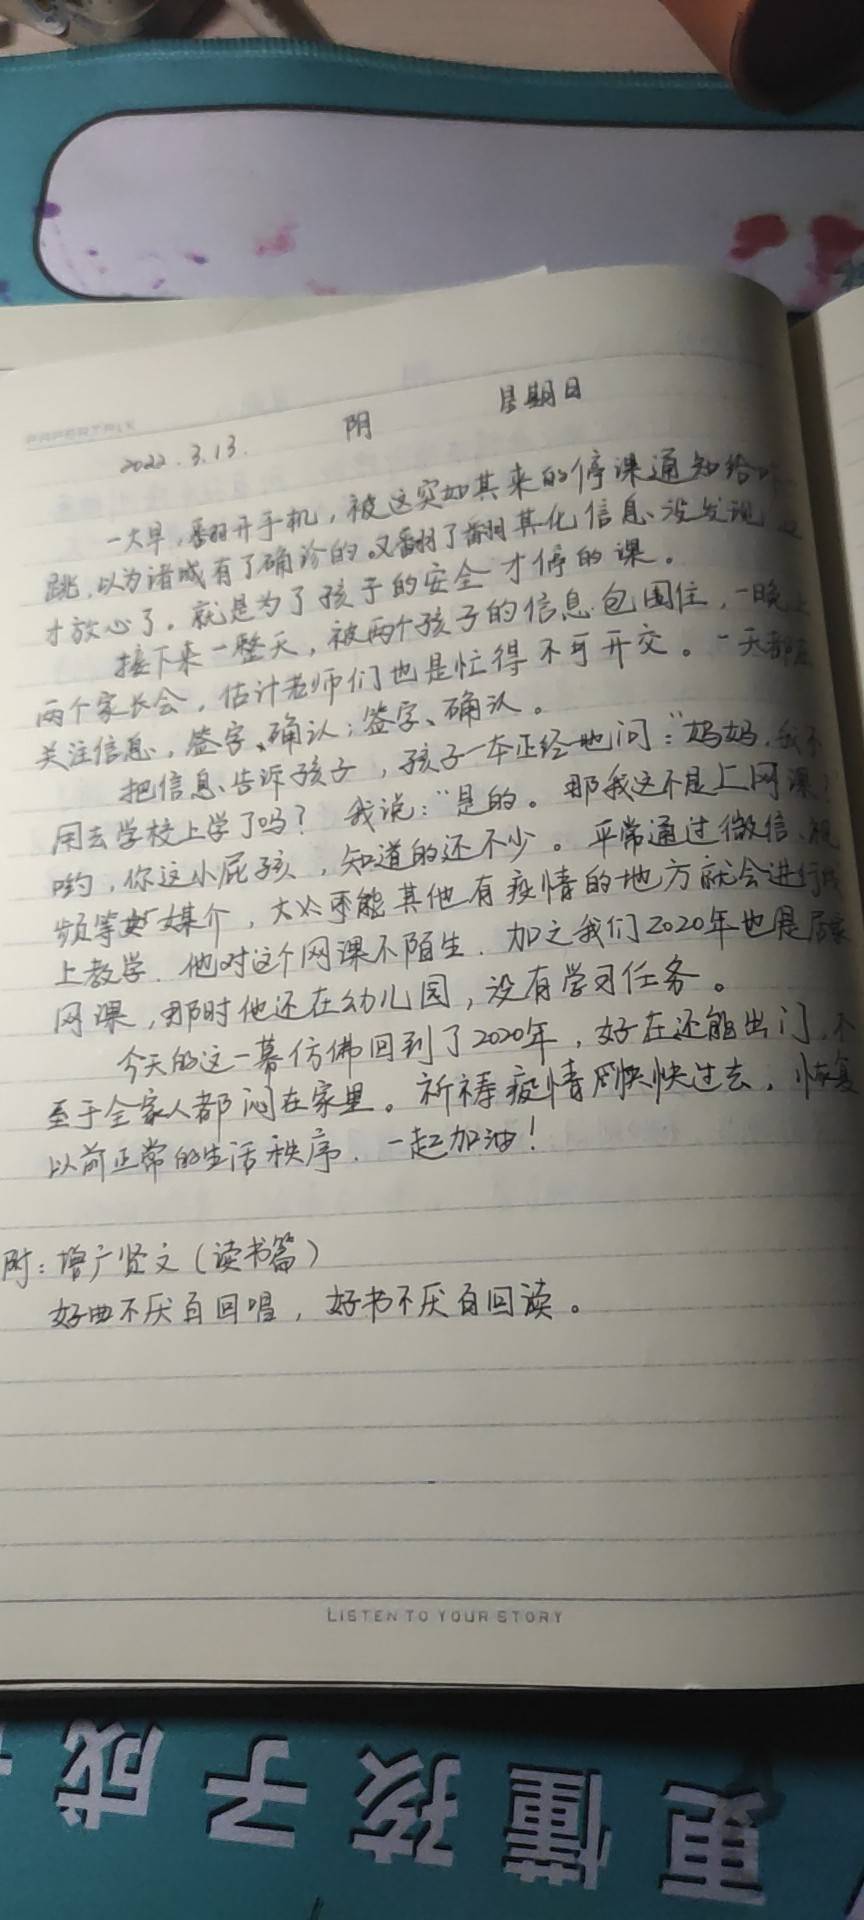 PAPERTALK
2022.3.13. 阴 星期日
一大早,翻开手机,被这突如其来的停课通知给吓一
跳,以为诸城有了确诊的。又翻了翻其化信息、没发现
才放心了。就是为了孩子的安全才停的课。
接下来一整天,被两个孩子的信息包围住,一晚上
两个家长会,估计老师们也是忙得不可开交。一天都在
关注信息,签字、确认;签字、确认。
把信息告诉孩子,孩子一本正经地问:"妈妈,我不
用去学校上学了吗? 我说:"是的。那我这不是上网课?
哟,你这小屁孩,知道的还不少。平常通过微信、视
频等媒介,大次可能其他有疫情的地方就会进行线
上教学.他对这个网课不陌生.加之我们2020年也是居家
网课,那时他还在幼儿园,没有学习任务。
今天的这一幕仿佛回到了2020年,好在还能出门,不
至于全家人都闷在家里。祈祷疫情快快过去,恢复
以前正常的生活秩序.一起加油!
附:增广贤文(读书篇)
好曲不厌百回唱,好书不厌百回读。
LISTEN TO YOUR STORY
更懂孩子成